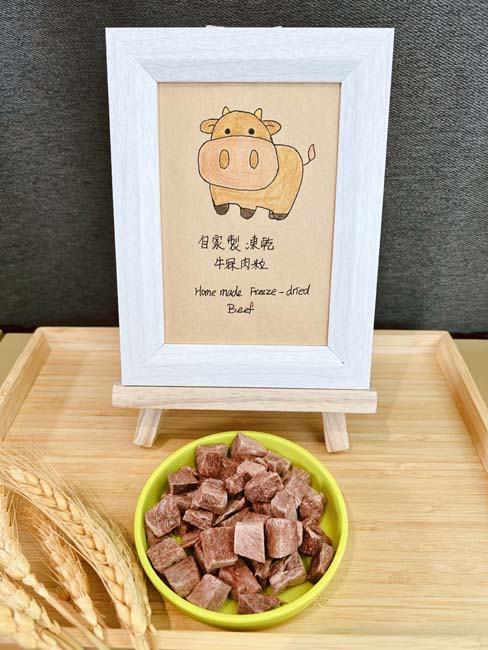 自家製凍乾
牛𦟌肉粒
Home made Freeze-dried
Beef